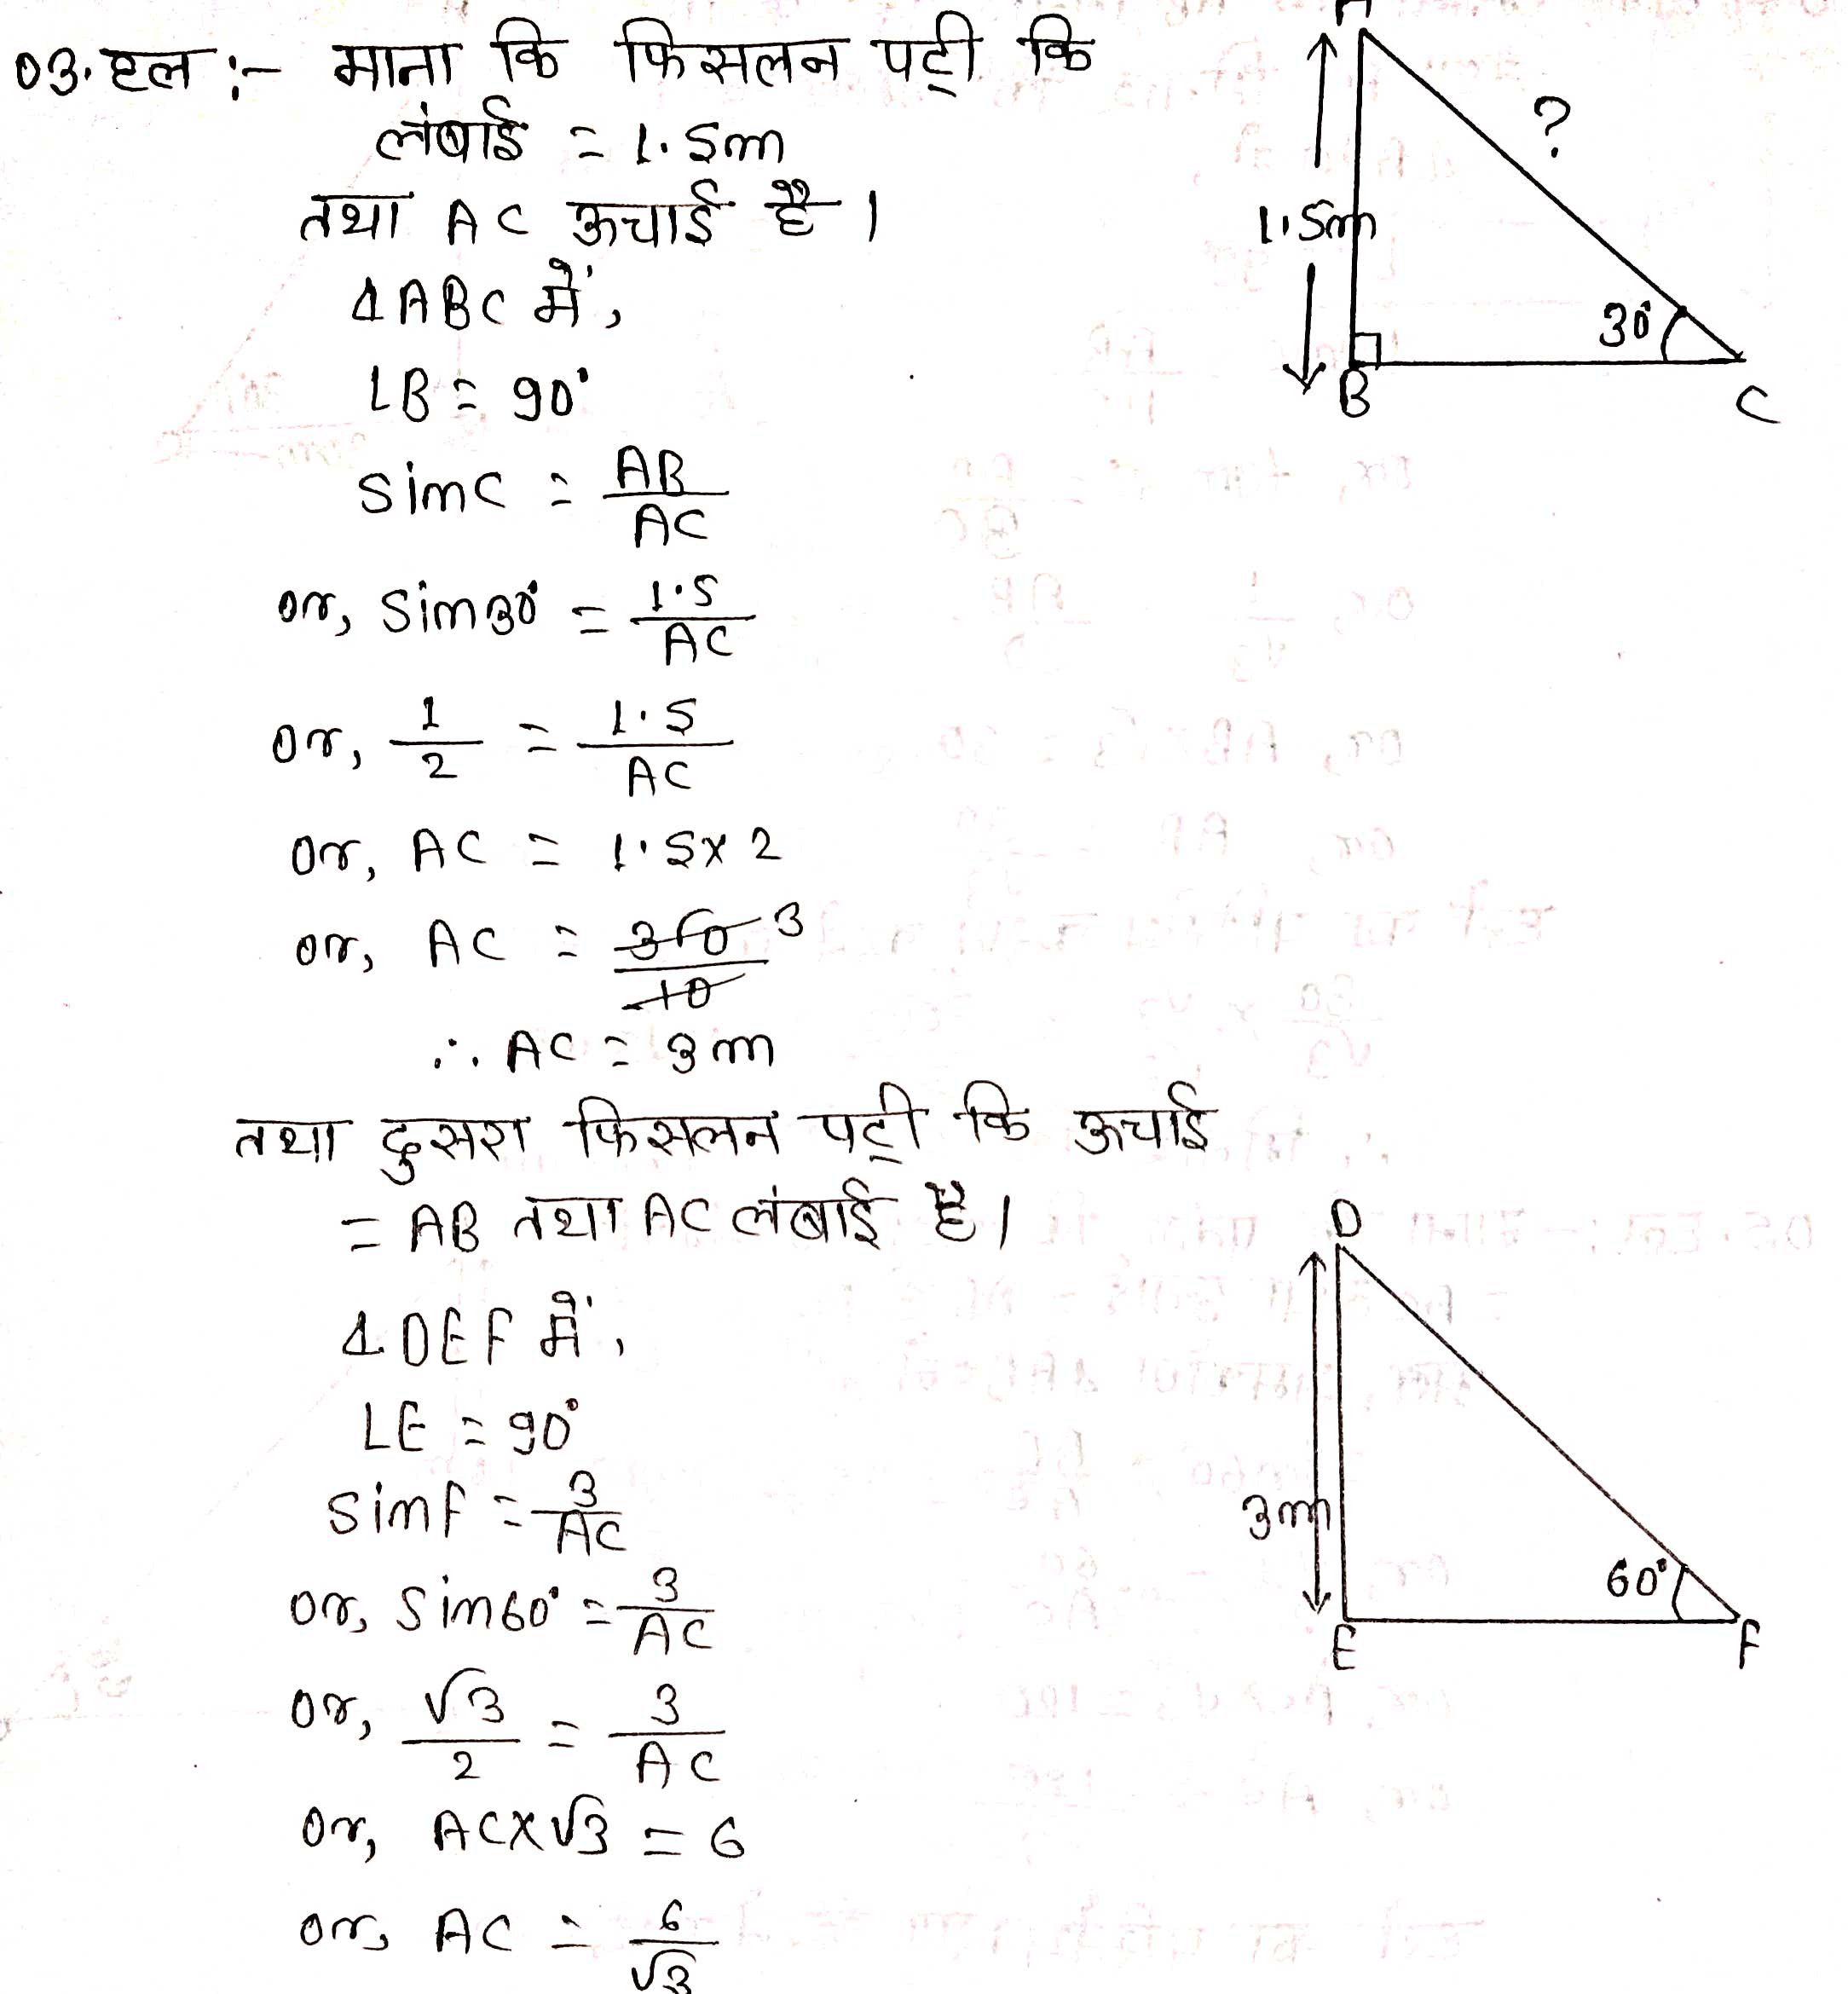 03. हल :- माना कि फिसलन पट्टी कि
लंबाई = 1.5m
तथा AC ऊचाई है।
ΔABC में,
∠B = 90°
sinC = AB/AC
or, sin30° = 1.5/AC
or, 1/2 = 1.5/AC
or, AC = 1.5×2
or, AC = 30/10 3
∴ AC = 3m
तथा दुसरा फिसलन पट्टी कि ऊचाई
= AB तथा AC लंबाई है।
ΔDEF में,
∠E = 90°
sinF = 3/AC
or, sin60° = 3/AC
or, √3/2 = 3/AC
or, AC×√3 = 6
or, AC = 6/√3
A
?
1.5m
30°
B
C
D
3m
60°
E
F